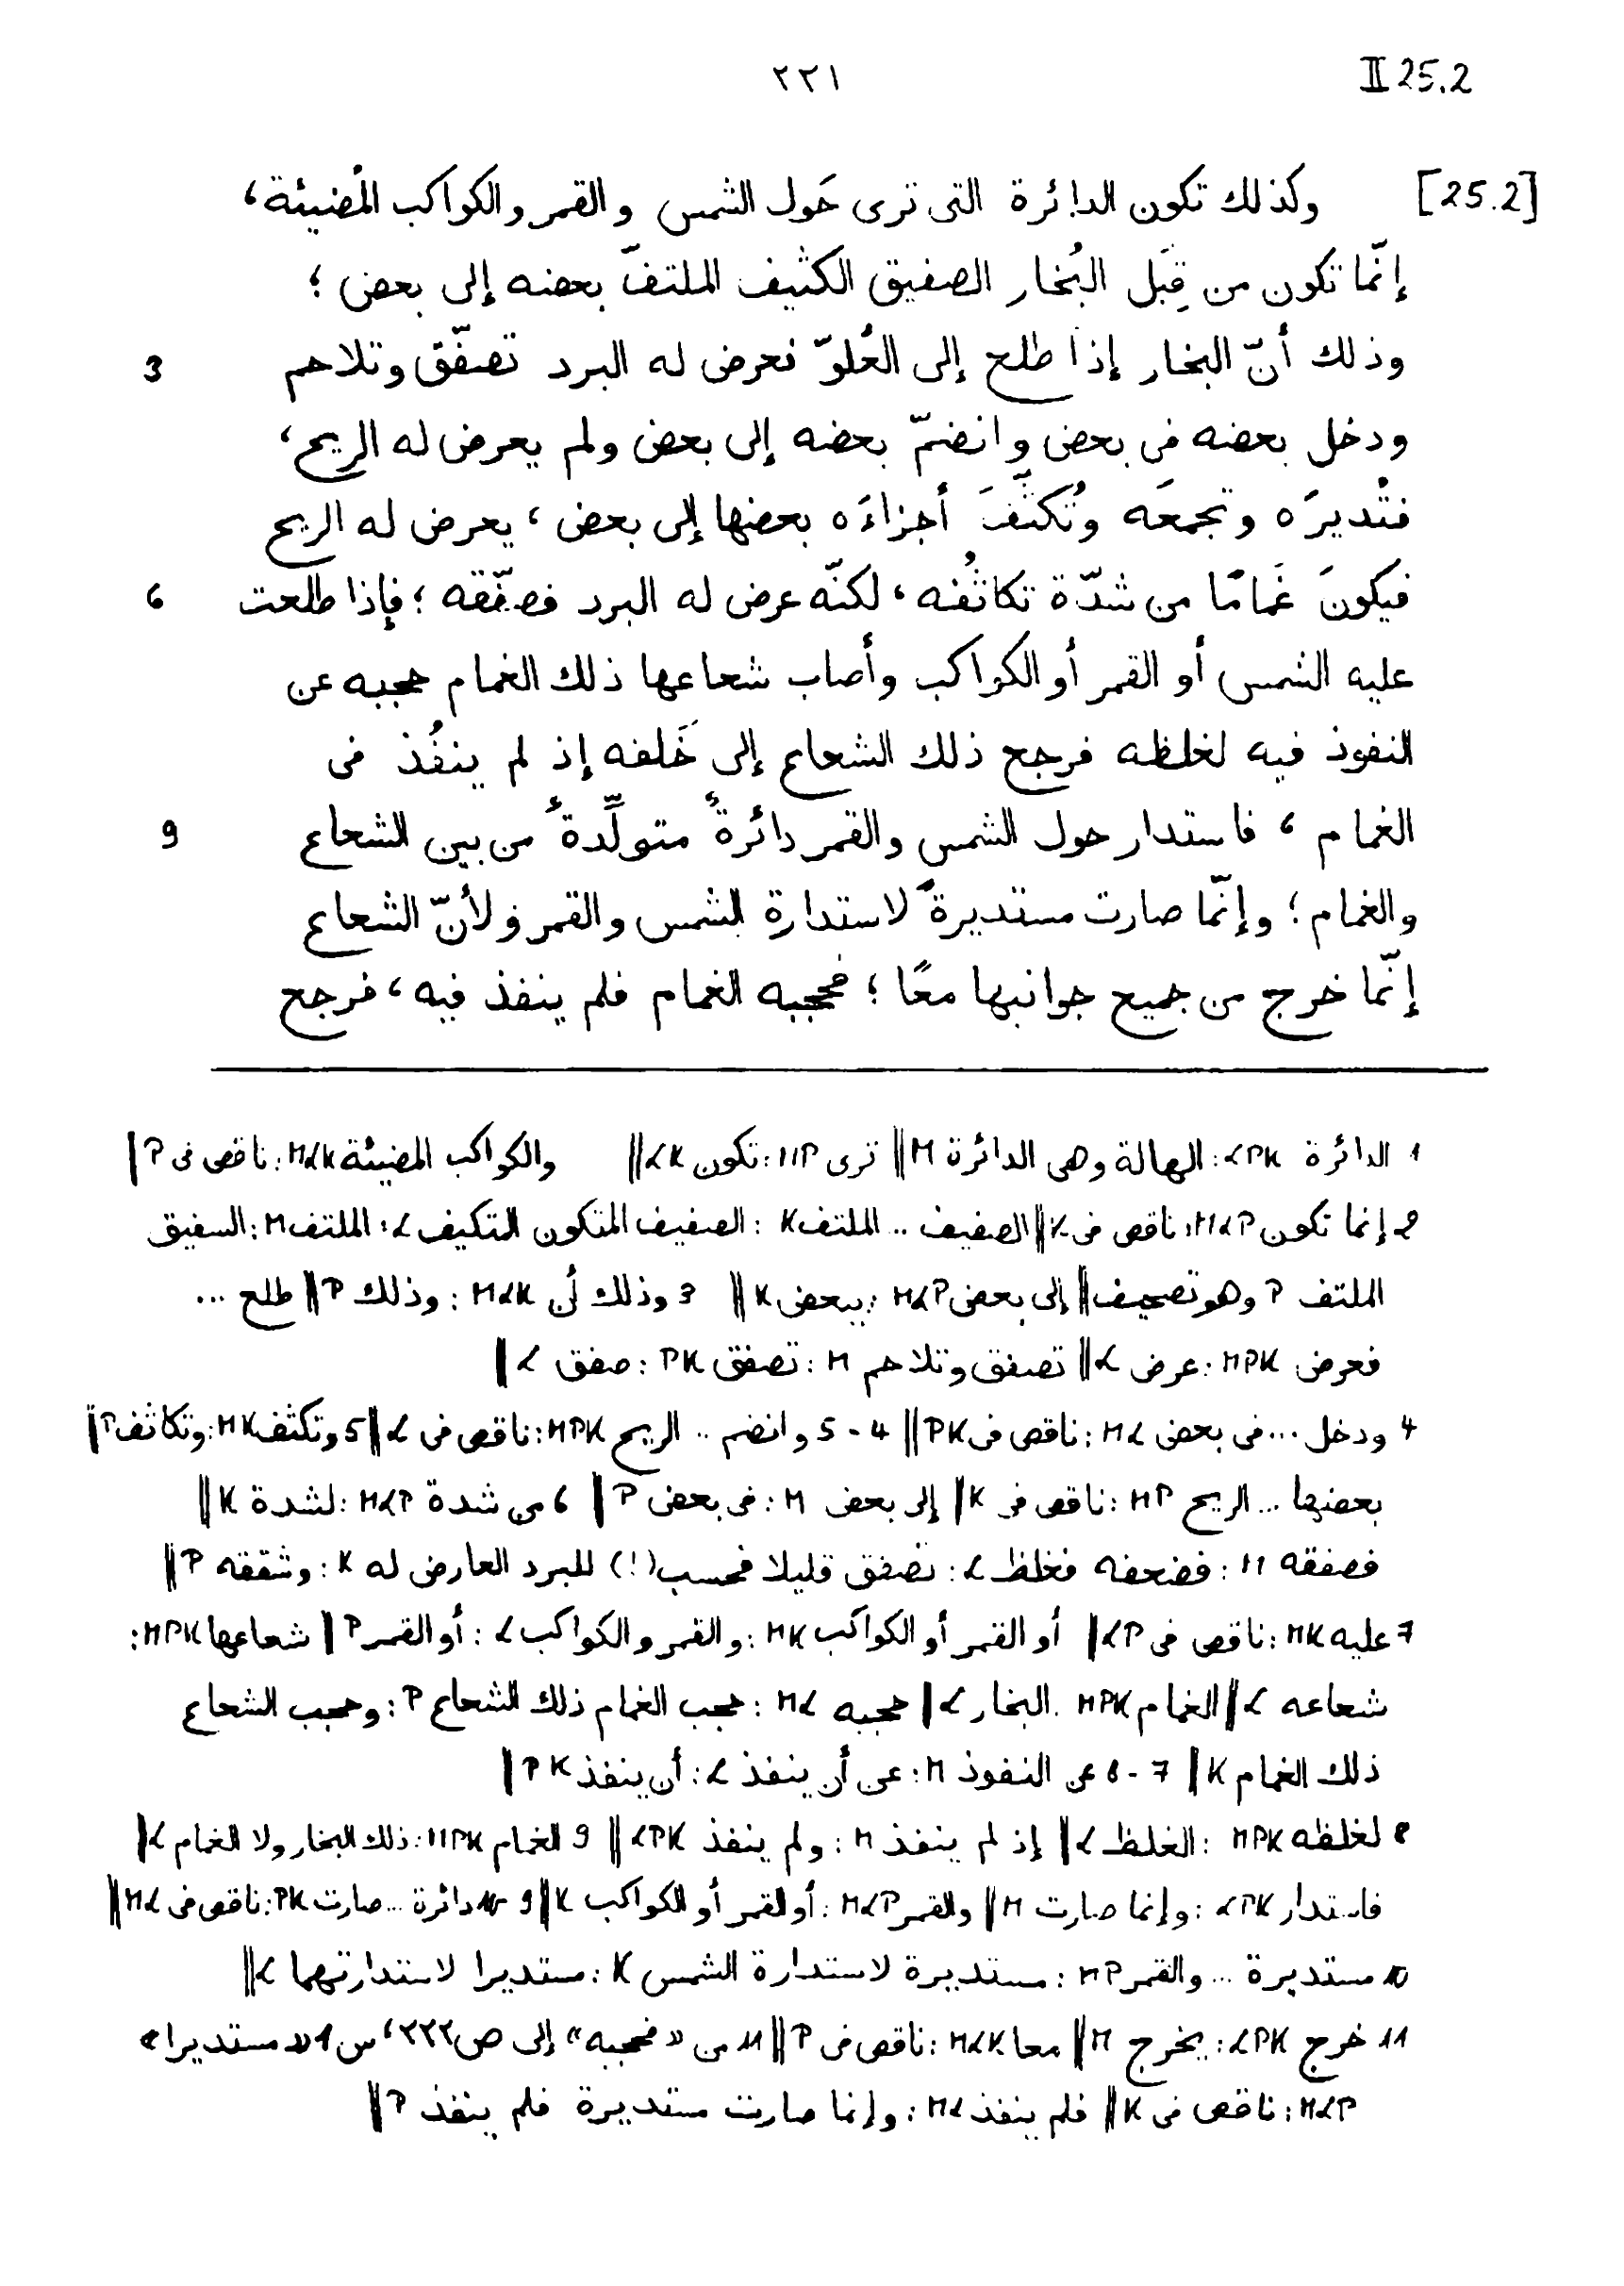 ٢٢١ II 25.2
[25.2] وكذلك تكون الدائرة التى ترى حَول الشمس والقمر والكواكب المُضيئة،
إنّما تكون من قِبَل البُخار الصفيق الكثيف الملتفّ بعضه إلى بعض؛
وذلك أنّ البخار إذا طلع إلى العُلوّ فعرض له البرد تصفّق وتلاحم 3
ودخل بعضه فى بعض وانضمّ بعضه إلى بعض ولم يعرض له الريح،
فتُديرَه وتجمعَه وتُكثّفَ أجزاءَه بعضها إلى بعض، يعرض له الريح
فيكونَ غَمامًا من شدّة تكاثُفه، لكنّه عرض له البرد فصفّقه؛ فإذا طلعت 6
عليه الشمس أو القمر أو الكواكب وأصاب شعاعها ذلك الغمام حجبه عن
النفوذ فيه لغلظه فرجع ذلك الشعاع إلى خَلفه إذ لم ينفُذ فى
الغمام، فاستدار حول الشمس والقمر دائرةٌ متولِّدةٌ من بين الشعاع 9
والغمام؛ وإنّما صارت مستديرةً لاستدارة الشمس والقمر ولأنّ الشعاع
إنّما خرج من جميع جوانبها معًا؛ فحجبه الغمام فلم ينفذ فيه، فرجع
1 الدائرة LPK: الهالة وهى الدائرة M || ترى MP: تكون LK || والكواكب المضيئة MLK: ناقص فى P ||
2 إنما تكون MLP: ناقص فى K || الصفيف .. الملتف K: الصفيف المتكون المتكيف L: الملتف M: السفيق
الملتف P وهو تصحيف || إلى بعض MLP: ببعض K || 3 وذلك أن MLK: وذلك P || طلع ...
فعرض MPK: عرض L || تصفق وتلاحم M: تصفق PK: صفق L ||
4 ودخل ... فى بعض ML: ناقص فى PK || 4-5 وانضم .. الريح MPK: ناقص فى L || 5 وتكثف MK: وتكاثف P ||
بعضها ... الريح MP: ناقص فى K || إلى بعض M: فى بعض P || 6 من شدة MLP: لشدة K ||
فصفقه M: فضعفه فغلظ L: تصفق قليلا فحسب (!) للبرد العارض له K: وشققه P ||
7 عليه MK: ناقص فى LP || أو القمر أو الكواكب MK: والقمر والكواكب L: أو القمر P || شعاعها MPK:
شعاعه L || الغمام MPK: البخار L || حجبه ML: حجب الغمام ذلك الشعاع P: وحجب الشعاع
ذلك الغمام K || 7-8 عن النفوذ M: عن أن ينفذ L: أن ينفذ PK ||
8 لغلظه MPK: الغلظ L || إذ لم ينفذ M: ولم ينفذ LPK || 9 الغمام MPK: ذلك البخار ولا الغمام L ||
فاستدار LPK: وإنما صارت M || والقمر MLP: أو القمر أو الكواكب K || 9-10 دائرة ... صارت PK: ناقص فى ML ||
10 مستديرة ... والقمر MP: مستديرة لاستدارة الشمس K: مستديرا لاستدارتهما L ||
11 خرج LPK: يخرج M || معا MLK: ناقص فى P || 11 من «فحجبه» إلى ص ٢٢٢، س 1 «مستديرا»
MLP: ناقص فى K || فلم ينفذ ML: وإنما صارت مستديرة فلم ينفذ P ||